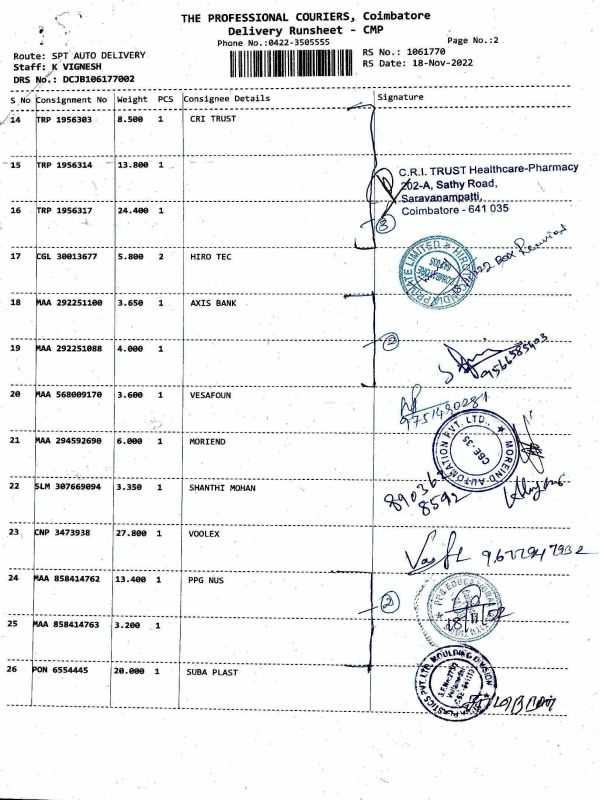 THE PROFESSIONAL COURIERS, Coimbatore
Delivery Runsheet - CMP
Phone No.:0422-3505555
Page No.:2
Route: SPT AUTO DELIVERY
RS No.: 1061770
Staff: K VIGNESH
RS Date: 18-Nov-2022
DRS No.: DCJB106177002
S No Consignment No Weight PCS Consignee Details Signature
14 TRP 1956303 8.500 1 CRI TRUST
15 TRP 1956314 13.800 1
C.R.I. TRUST Healthcare-Pharmacy
202-A, Sathy Road,
Saravanampatti,
Coimbatore - 641 035
16 TRP 1956317 24.400 1
3
17 CGL 30013677 5.800 2 HIRO TEC
18 MAA 292251100 3.650 1 AXIS BANK
2
19 MAA 292251088 4.000 1
9566585403
20 MAA 568009170 3.600 1 VESAFOUN
9751490281
21 MAA 294592690 6.000 1 MORIEND
MOREIND AUTOMATION PVT. LTD.,
CBE-35
22 SLM 307669094 3.350 1 SHANTHI MOHAN
8592
23 CNP 3473938 27.800 1 VOOLEX
24 MAA 858414762 13.400 1 PPG NUS
2
25 MAA 858414763 3.200 1
26 PON 6554445 20.000 1 SUBA PLAST